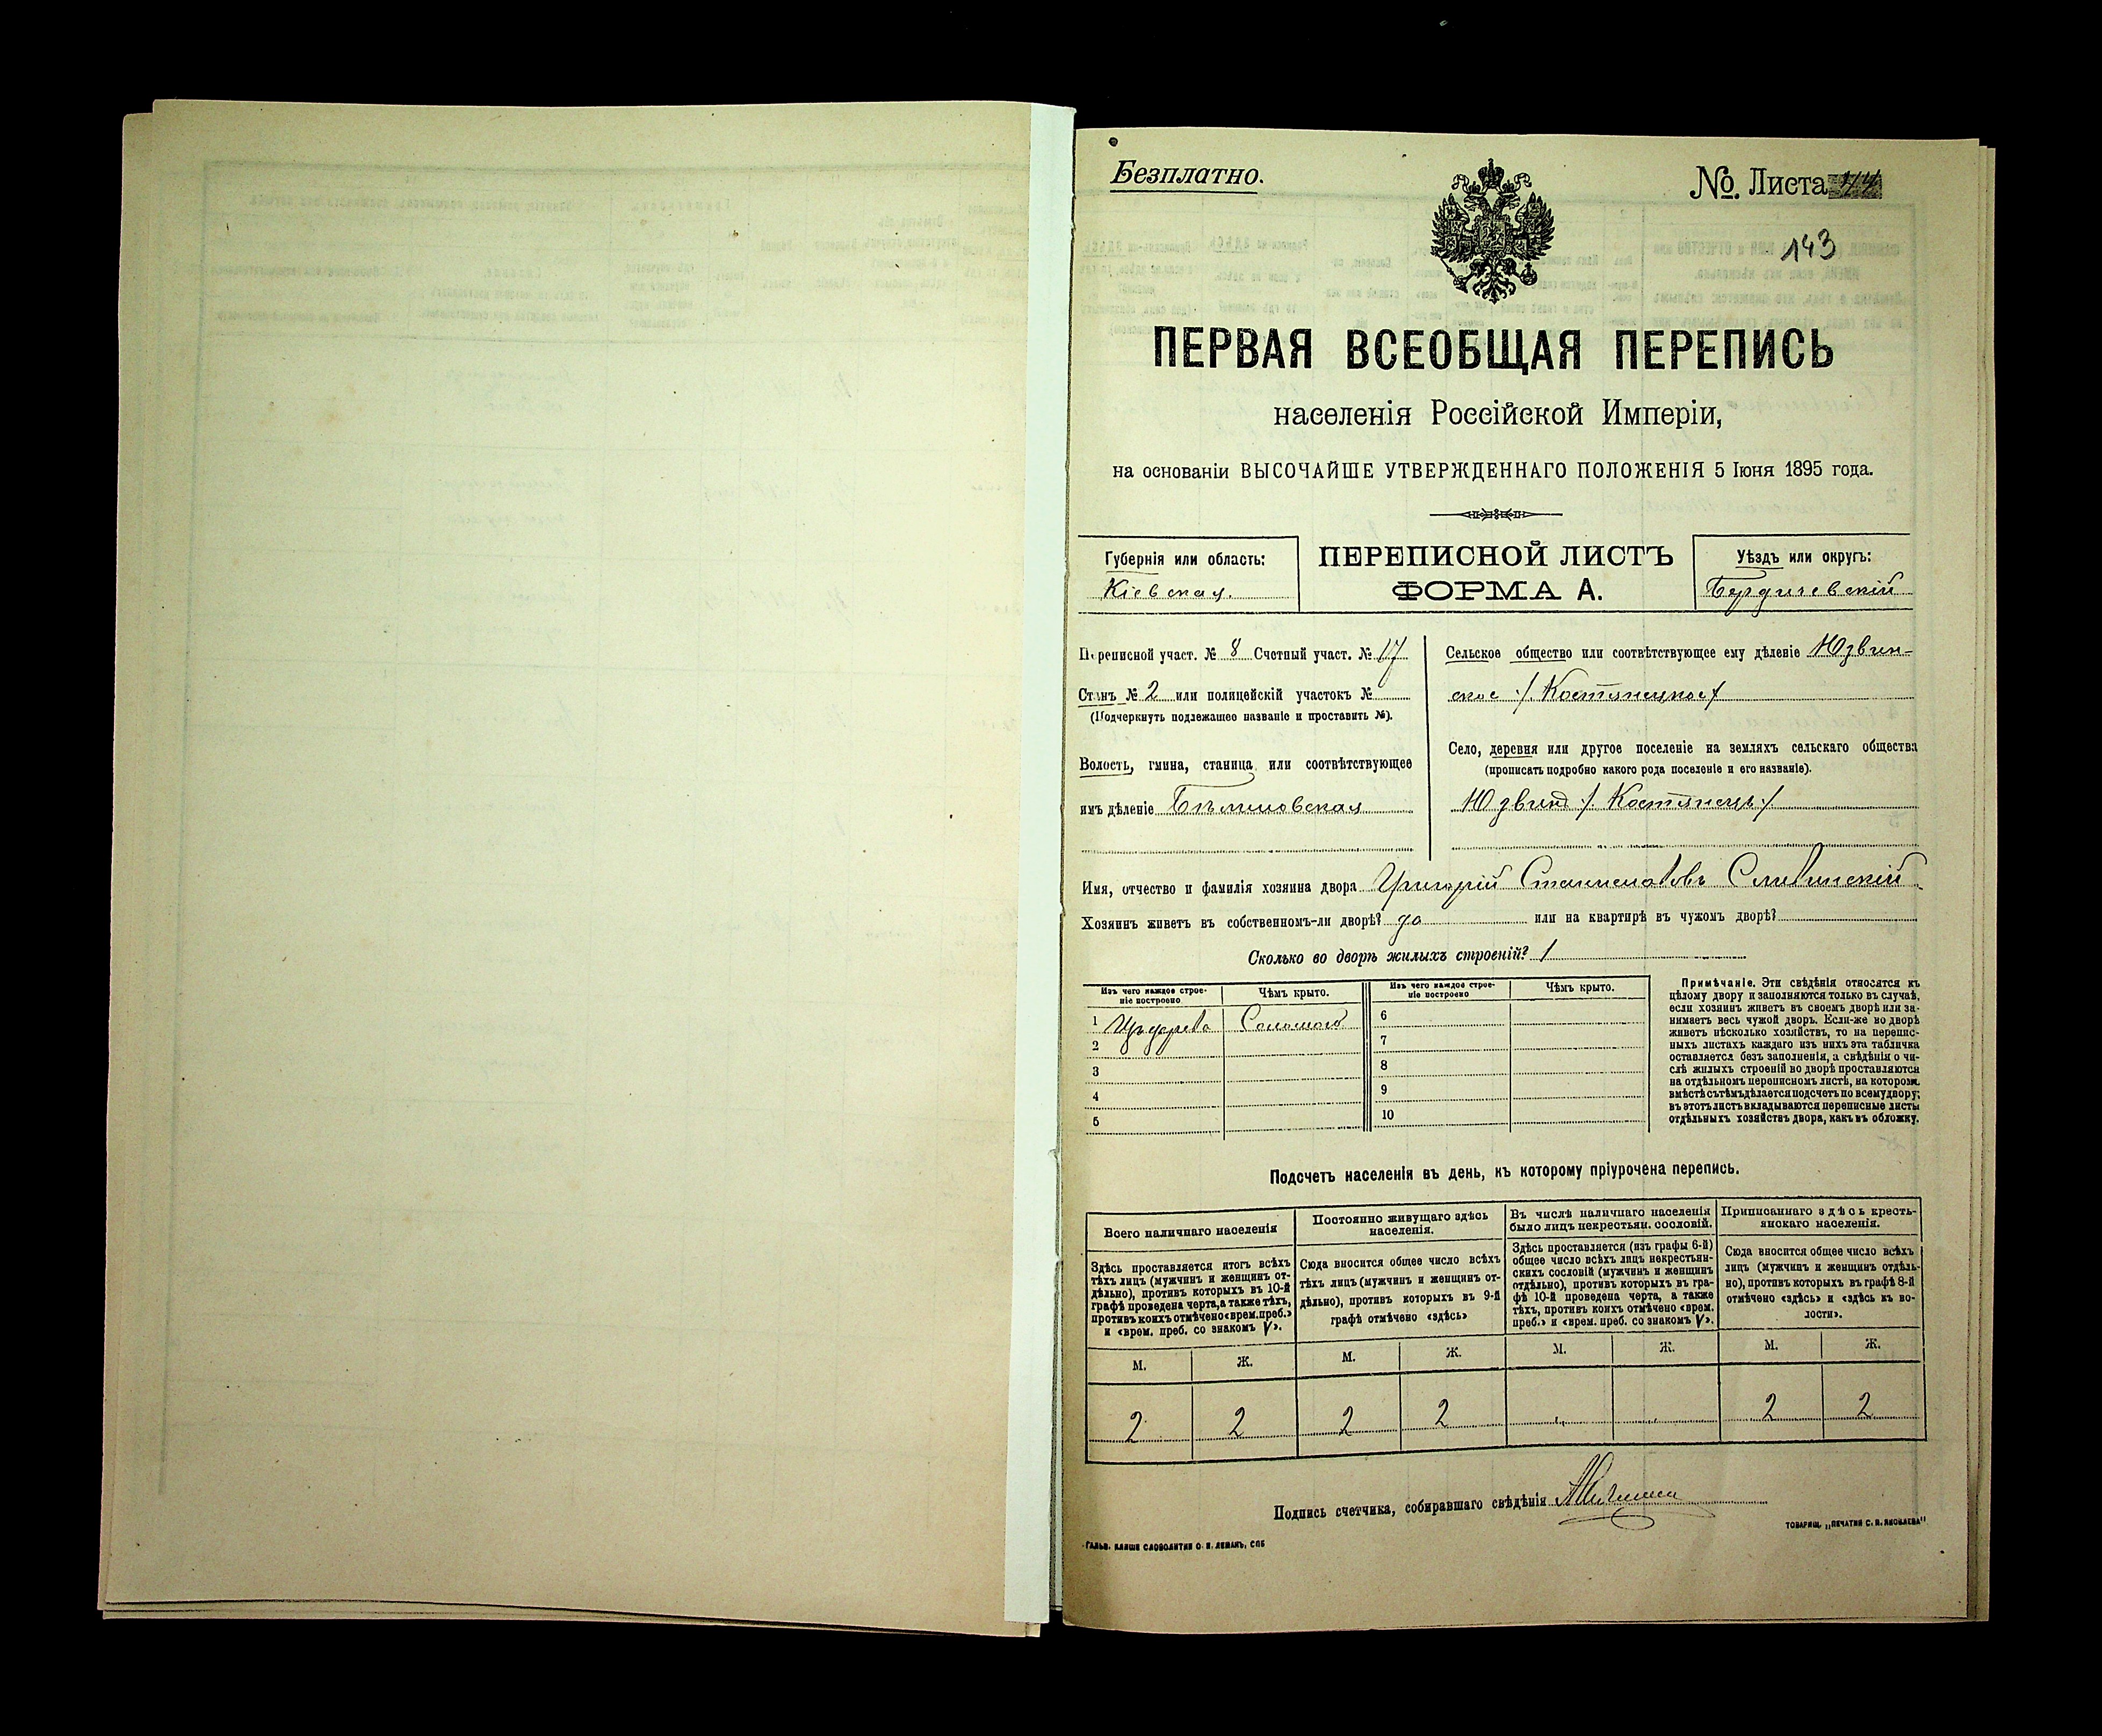 Безплатно.
№ Листа 44
143
ПЕРВАЯ ВСЕОБЩАЯ ПЕРЕПИСЬ
населенія Россійской Имперіи,
на основаніи ВЫСОЧАЙШЕ УТВЕРЖДЕННАГО ПОЛОЖЕНІЯ 5 Іюня 1895 года.
Губернія или область:
Кіевская.
ПЕРЕПИСНОЙ ЛИСТЪ
ФОРМА А.
Уѣздъ или округъ:
Бердичевскій
Переписной участ. № 8 Счетный участ. № 17
Станъ № 2 или полицейскій участокъ №
(Подчеркнуть подлежащее названіе и проставить №).
Волость, гмина, станица или соотвѣтствующее
имъ дѣленіе
Сельское общество или соотвѣтствующее ему дѣленіе Юзвин-
ское /. Костянецкое /
Село, деревня или другое поселеніе на земляхъ сельскаго общества
(прописать подробно какого рода поселеніе и его названіе).
Юзвинъ /. Костянецъ /
Имя, отчество и фамилія хозяина двора Григорій Станиславовъ Сливинскій
Хозяинъ живетъ въ собственномъ-ли дворѣ? да или на квартирѣ въ чужомъ дворѣ?
Сколько во дворѣ жилыхъ строеній? 1
Изъ чего каждое строе-
ніе построено
Чѣмъ крыто.
Изъ чего каждое строе-
ніе построено
Чѣмъ крыто.
1 Изъ дерева Соломою
2
3
4
5
6
7
8
9
10
Примѣчаніе. Эти свѣдѣнія относятся къ
цѣлому двору и заполняются только въ случаѣ,
если хозяинъ живетъ въ своемъ дворѣ или за-
нимаетъ весь чужой дворъ. Если-же во дворѣ
живетъ нѣсколько хозяйствъ, то на перепис-
ныхъ листахъ каждаго изъ нихъ эта табличка
оставляется безъ заполненія, а свѣдѣнія о чи-
слѣ жилыхъ строеній во дворѣ проставляются
на отдѣльномъ переписномъ листѣ, на которомъ
вмѣстѣ съ тѣмъ дѣлается подсчетъ по всему двору;
въ этотъ листъ вкладываются переписные листы
отдѣльныхъ хозяйствъ двора, какъ въ обложку.
Подсчетъ населенія въ день, къ которому пріурочена перепись.
Всего наличнаго населенія
Здѣсь проставляется итогъ всѣхъ
тѣхъ лицъ (мужчинъ и женщинъ от-
дѣльно), противъ которыхъ въ 10-й
графѣ проведена черта, а также тѣхъ,
противъ коихъ отмѣчено «врем. преб.»
и «врем. преб. со знакомъ V».
Постоянно живущаго здѣсь
населенія.
Сюда вносится общее число всѣхъ
тѣхъ лицъ (мужчинъ и женщинъ от-
дѣльно), противъ которыхъ въ 9-й
графѣ отмѣчено «здѣсь»
Въ числѣ наличнаго населенія
было лицъ некрестьян. сословій.
Здѣсь проставляется (изъ графы 6-й)
общее число всѣхъ лицъ некрестьян-
скихъ сословій (мужчинъ и женщинъ
отдѣльно), противъ которыхъ въ гра-
фѣ 10-й проведена черта, а также
тѣхъ, противъ коихъ отмѣчено «врем.
преб.» и «врем. преб. со знакомъ V».
Приписаннаго здѣсь кресть-
янскаго населенія.
Сюда вносится общее число всѣхъ
лицъ (мужчинъ и женщинъ отдѣль-
но), противъ которыхъ въ графѣ 8-й
отмѣчено «здѣсь» и «здѣсь къ во-
лости».
М. Ж. М. Ж. М. Ж. М. Ж.
2 2 2 2 „ „ 2 2
Подпись счетчика, собиравшаго свѣдѣнія
ГАЛЬВ. КЛИШЕ СЛОВОЛИТНИ О. И. ЛЕМАНЪ, СПБ
ТОВАРИЩ. „ПЕЧАТНЯ С. П. ЯКОВЛЕВА"